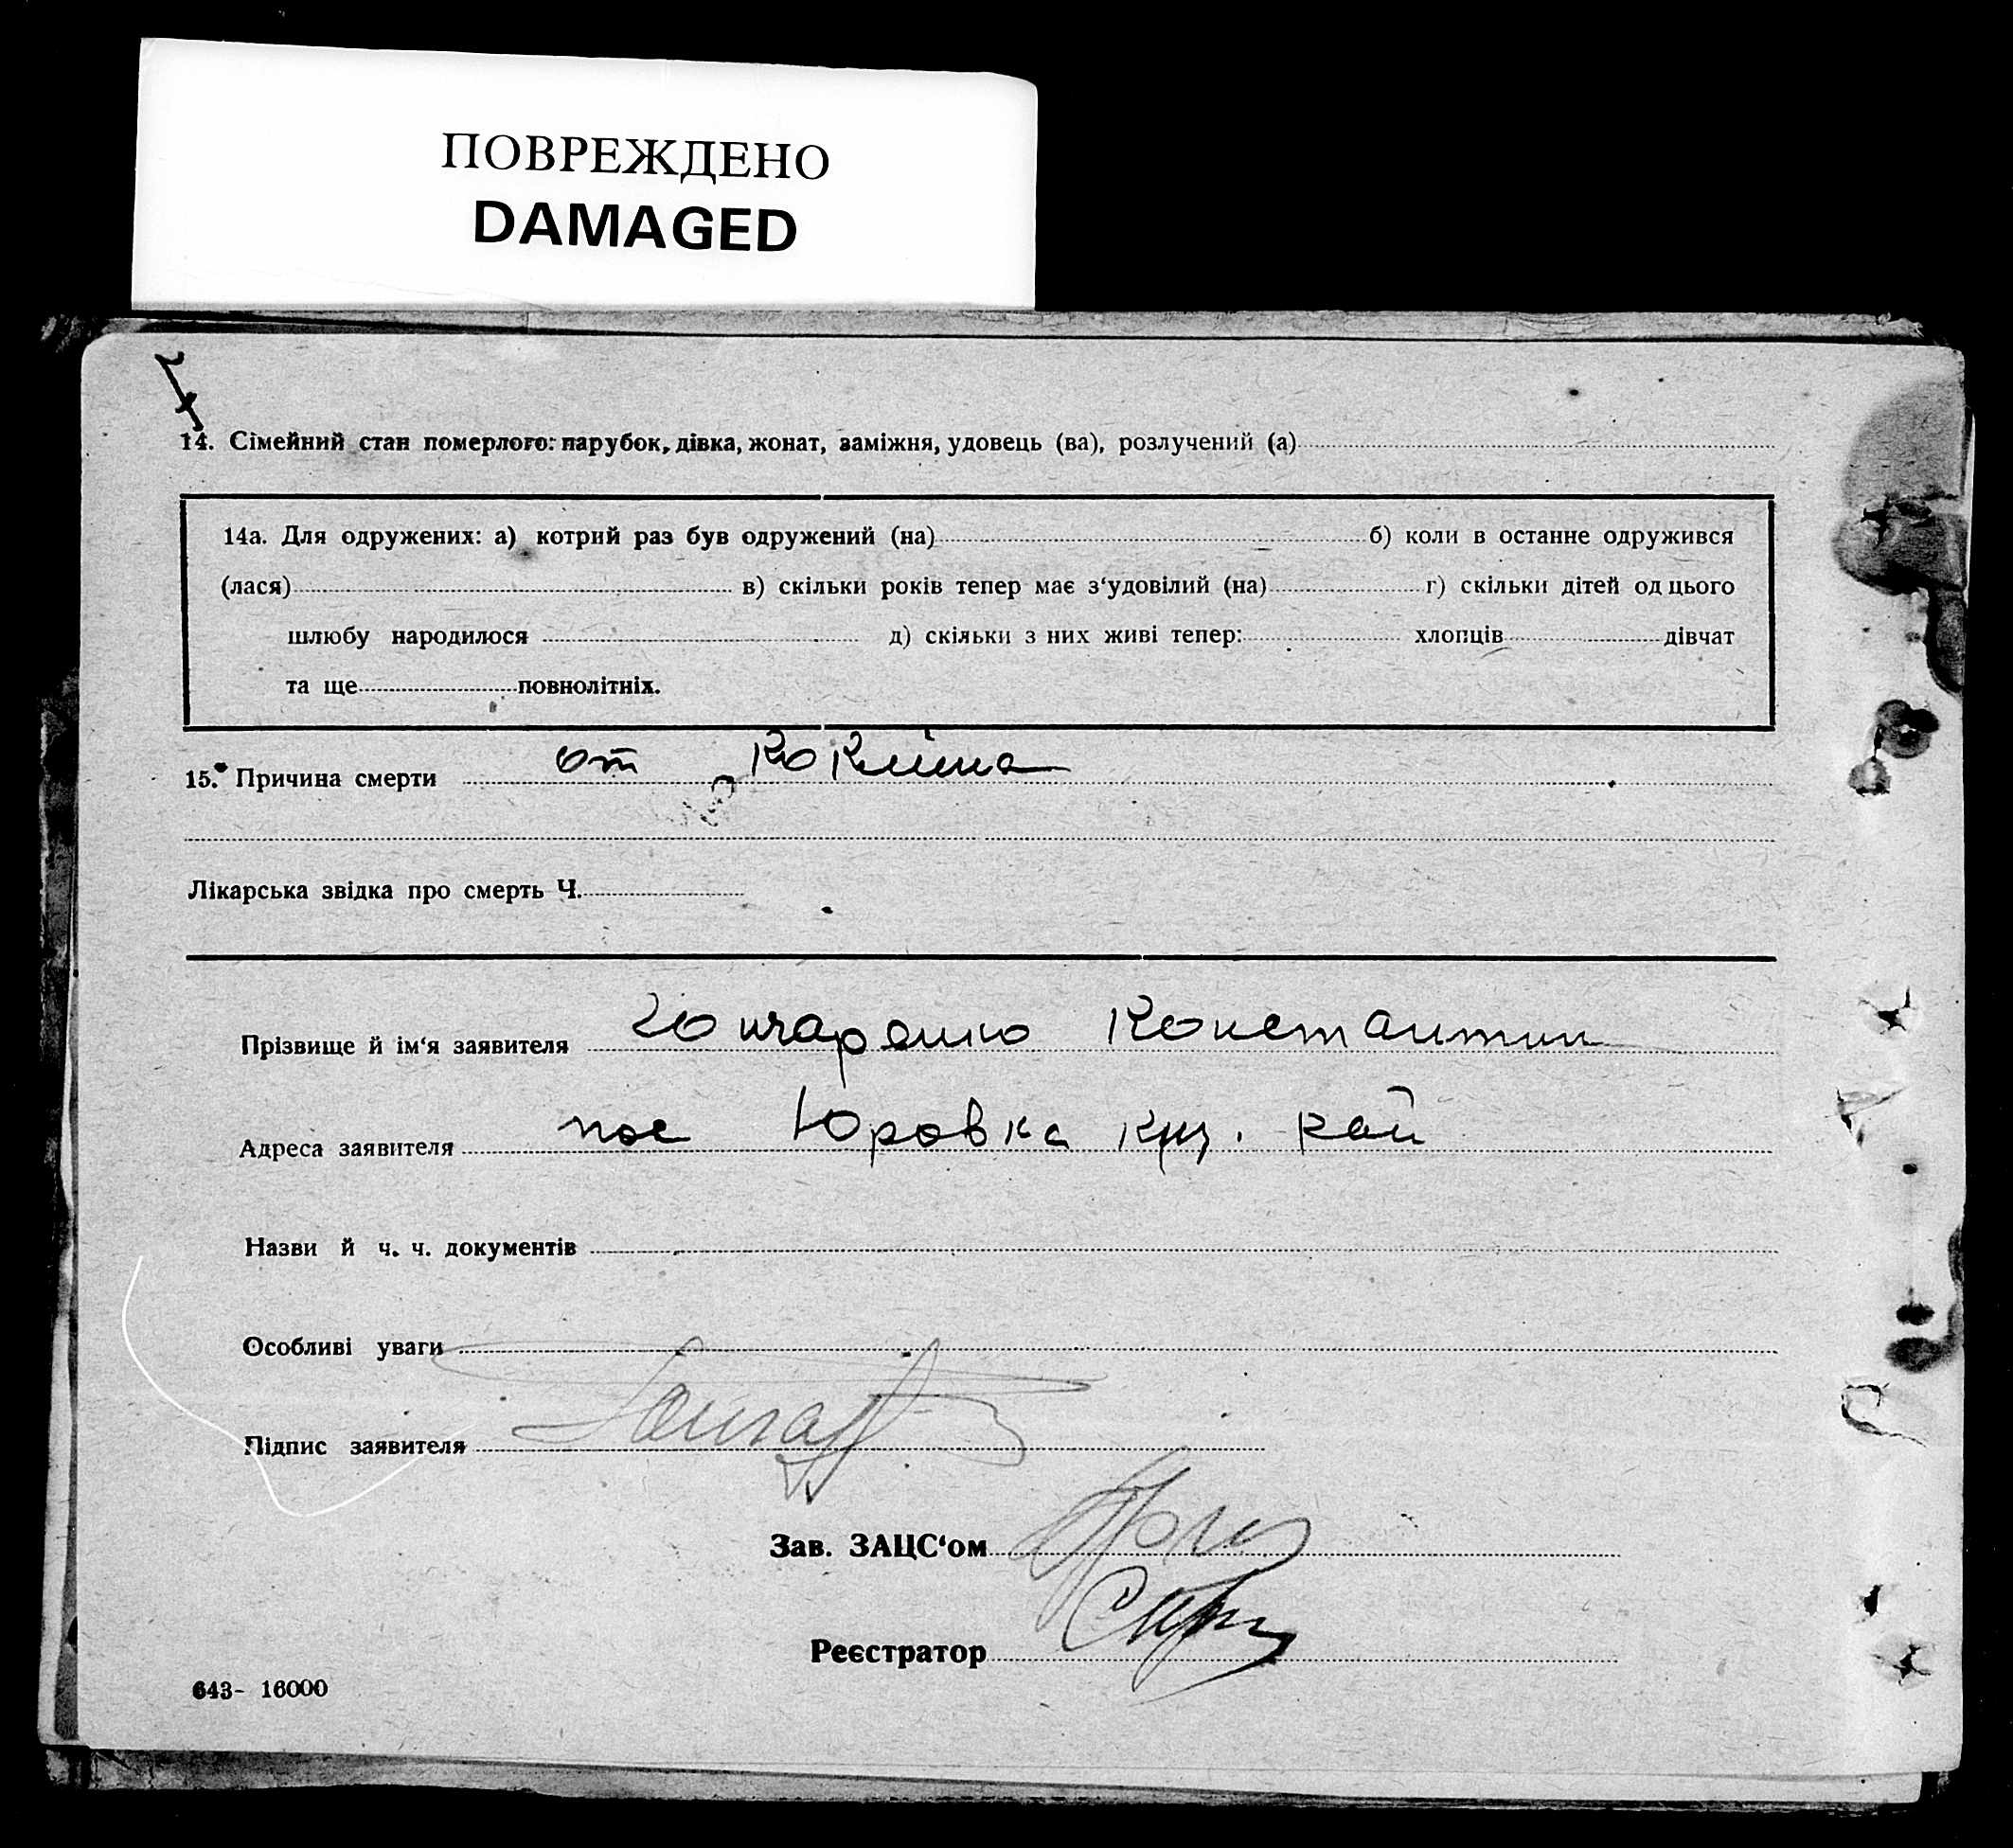 ПОВРЕЖДЕНО
DAMAGED
14. Сімейний стан померлого: парубок, дівка, жонат, заміжня, удовець (ва), розлучений (а)
14а. Для одружених: а) котрий раз був одружений (на) б) коли в останне одружився
(лася) в) скільки років тепер має з‘удовілий (на) г) скільки дітей од цього
шлюбу народилося д) скільки з них живі тепер: хлопців дівчат
та ще повнолітніх.
15. Причина смерти от Коклюша
Лікарська звідка про смерть Ч.
Прізвище й ім‘я заявителя Гончаренко Константин
Адреса заявителя пос Юровка
Назви й ч. ч. документів
Особливі уваги
Підпис заявителя
Зав. ЗАЦС‘ом
Реєстратор
643- 16000